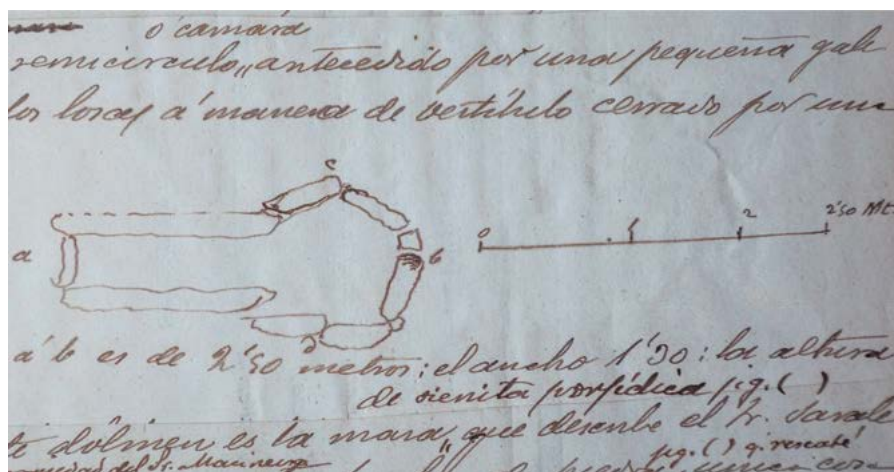 ó camara
semicirculo,, antecedido por una pequeña gale
los losas á manera de vestíbulo cerrado por una
c
a
b
0 1 2 2'50 Mt
á b es de 2'50 metros: el ancho 1'30: la altura
de sienita porfídica fig. ( )
dólmen es la maza,, que describe el Sr.
del Sr. Macineira
fig. ( ) q. rescaté